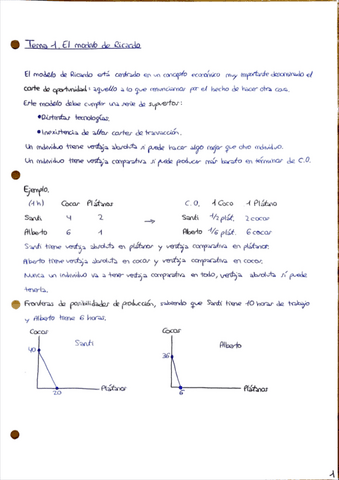 Tema 1. El modelo de Ricardo
El modelo de Ricardo está centrado en un concepto económico muy importante denominado el
coste de oportunidad: aquello a lo que renunciamos por el hecho de hacer otra cosa.
Este modelo debe cumplir una serie de supuestos:
• Distintas tecnologías.
• Inexistencia de altos costes de transacción.
Un individuo tiene ventaja absoluta si puede hacer algo mejor que otro individuo.
Un individuo tiene ventaja comparativa si puede producir más barato en términos de C.O.
Ejemplo.
(1h) Cocos Plátanos C.O. 1 Coco 1 Plátano
Santi 4 2 → Santi 1/2 plát. 2 cocos
Alberto 6 1 Alberto 1/6 plát. 6 cocos
Santi tiene ventaja absoluta en plátanos y ventaja comparativa en plátanos.
Alberto tiene ventaja absoluta en cocos y ventaja comparativa en cocos.
Nunca un individuo va a tener ventaja comparativa en todo, ventaja absoluta sí puede
tenerla.
Fronteras de posibilidades de producción, sabiendo que Santi tiene 10 horas de trabajo
y Alberto tiene 6 horas.
Cocos Cocos
Santi Alberto
40 36
20 Plátanos 6 Plátanos
1